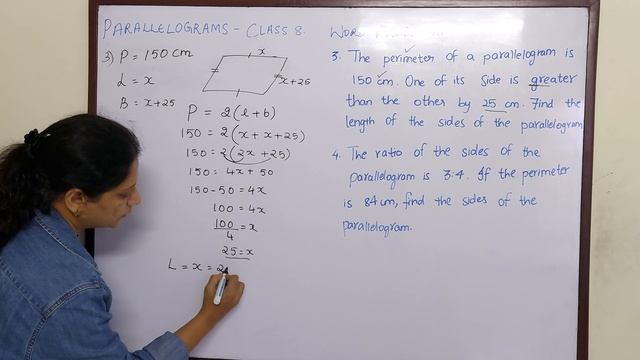 PARALLELOGRAMS - CLASS 8.
3) P = 150 cm
L = x
B = x+25
x
x+25
P = 2(l+b)
150 = 2(x + x + 25)
150 = 2(2x + 25)
150 = 4x + 50
150-50 = 4x
100 = 4x
100/4 = x
25 = x
L = x = 2
3. The perimeter of a parallelogram is
150 cm. One of its side is greater
than the other by 25 cm. Find the
length of the sides of the parallelogram
4. The ratio of the sides of the
parallelogram is 3:4. If the perimeter
is 84 cm, find the sides of the
parallelogram.